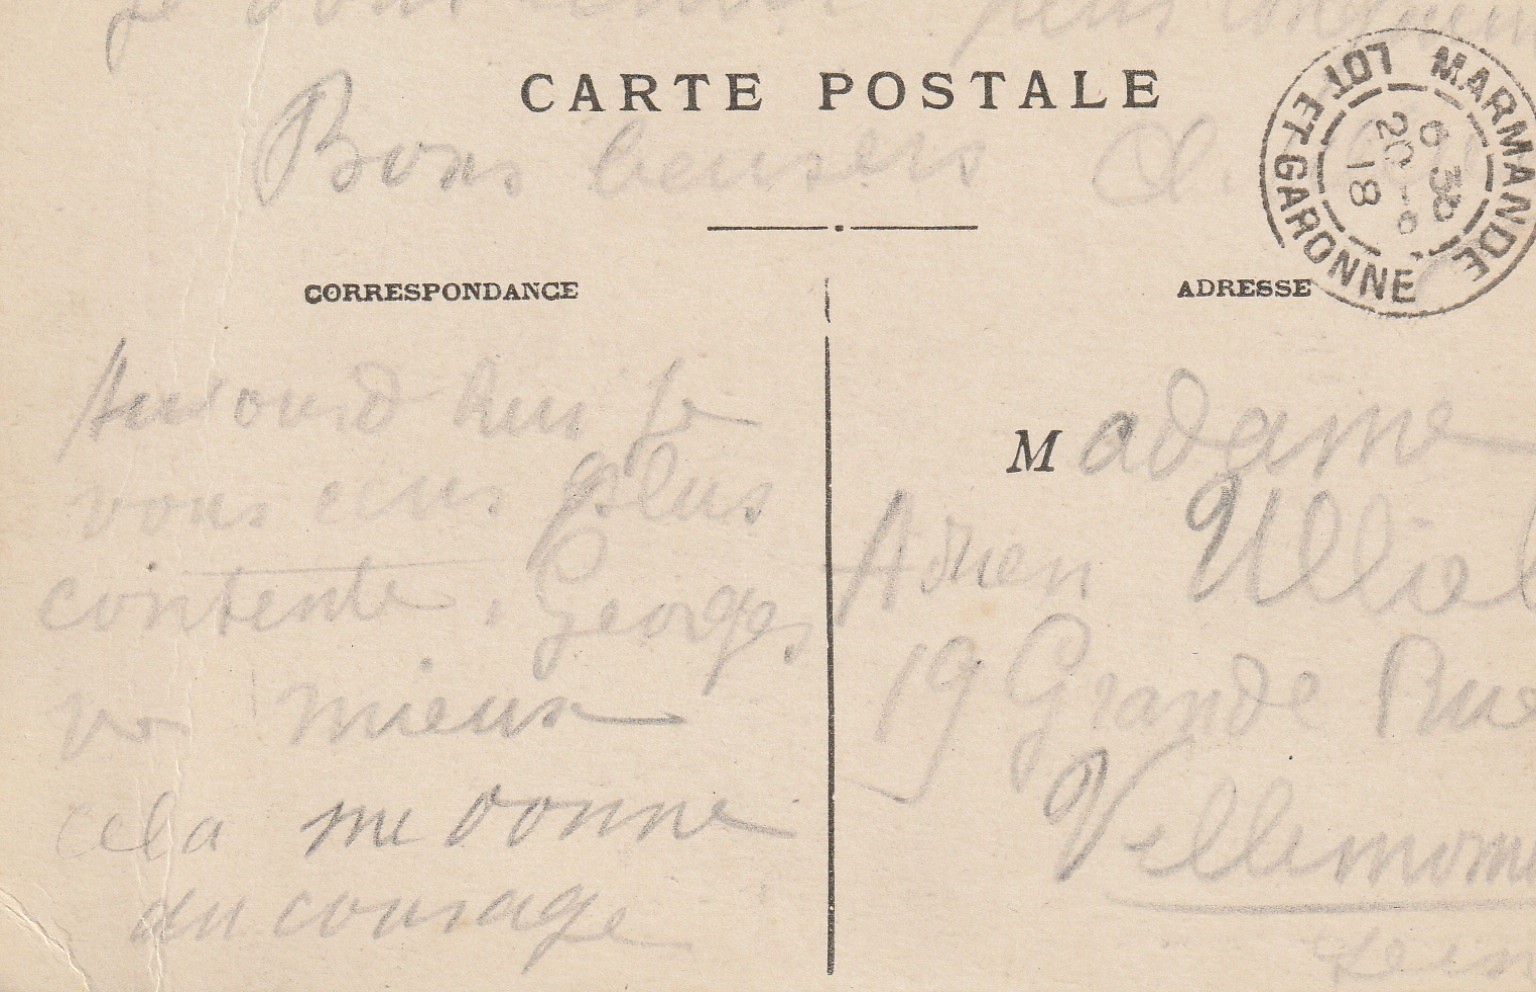 je vous
CARTE POSTALE
Bons baisers
MARMANDE
LOT ET GARONNE
6 30
20 - 8
18
CORRESPONDANCE
ADRESSE
Aujourd hui je
vous plus
contente. Georges
va mieux
cela me donne
du courage
Madame
Adrien
19 Grande Rue
Villemom